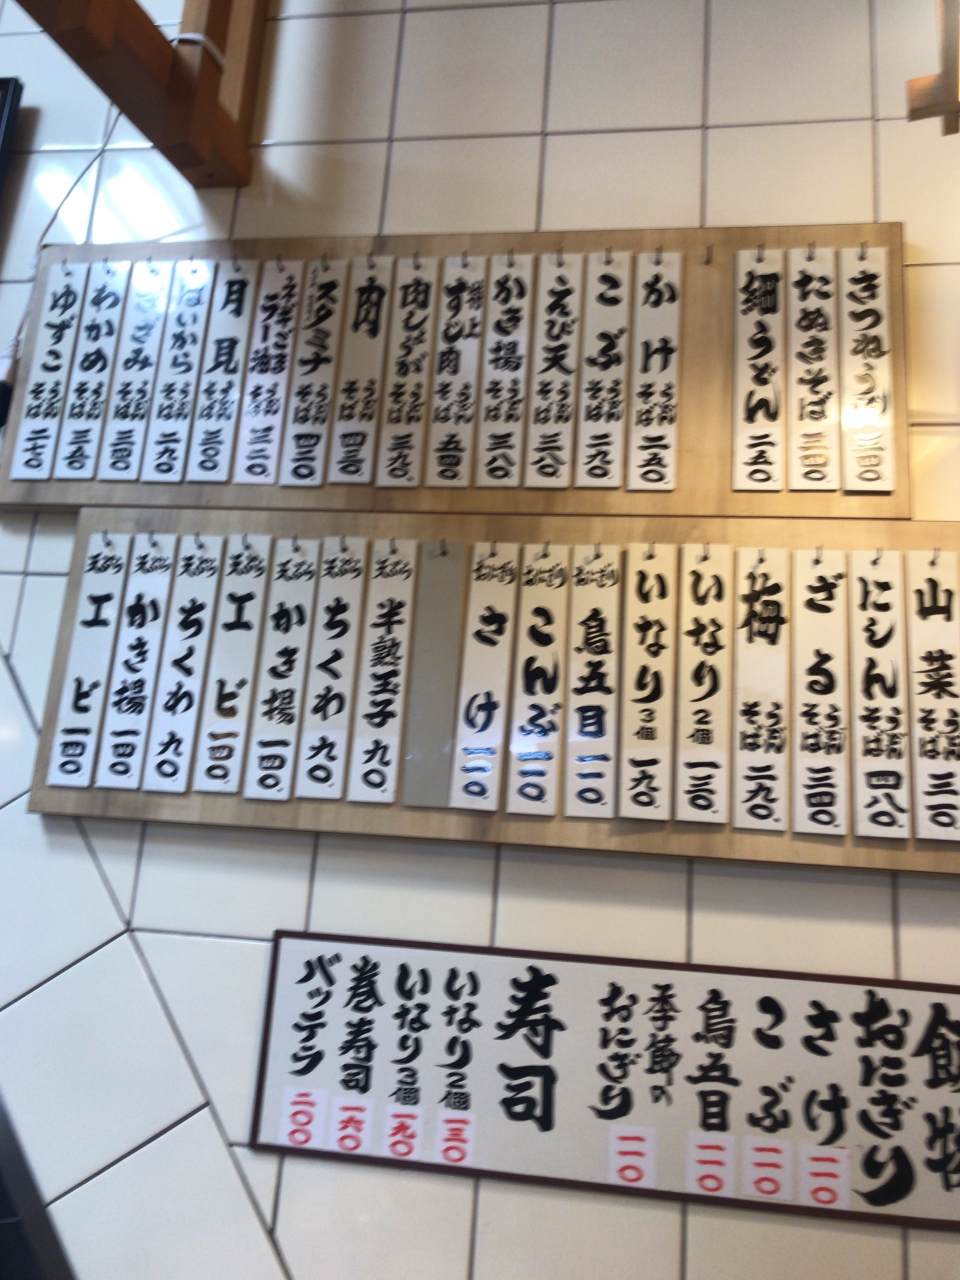 きつねうどん 三四〇
たぬきそば 三四〇
細うどん 二五〇
かけ うどん そば 二五〇
こぶ うどん そば 二九〇
えび天 うどん そば 三八〇
かき揚 うどん そば 三八〇
すじ肉 うどん そば 五四〇
肉しょうが うどん そば 三九〇
肉 うどん そば 四三〇
スタミナ うどん そば 四三〇
ラー油 うどん そば 三二〇
月見 うどん そば 三〇〇
はいから うどん そば 二九〇
きざみ うどん そば 三四〇
わかめ うどん そば 三五〇
ゆずこ うどん そば 二七〇
山菜 うどん そば
にしん うどん そば 四八〇
ざる そば 三四〇
梅 うどん そば 二九〇
いなり 2個 一三〇
いなり 3個 一九〇
おにぎり 鳥五目 一一〇
おにぎり こんぶ 一一〇
おにぎり さけ 一一〇
天ぷら 半熟玉子 九〇
天ぷら ちくわ 九〇
天ぷら かき揚 一四〇
天ぷら エビ 一四〇
天ぷら ちくわ 九〇
天ぷら かき揚 一四〇
天ぷら エビ 一四〇
飯物
おにぎり
さけ 一一〇
こぶ 一一〇
鳥五目 一一〇
季節の
おにぎり 一一〇
寿司
いなり2個 一三〇
いなり3個 一九〇
巻寿司 一六〇
バッテラ 二〇〇